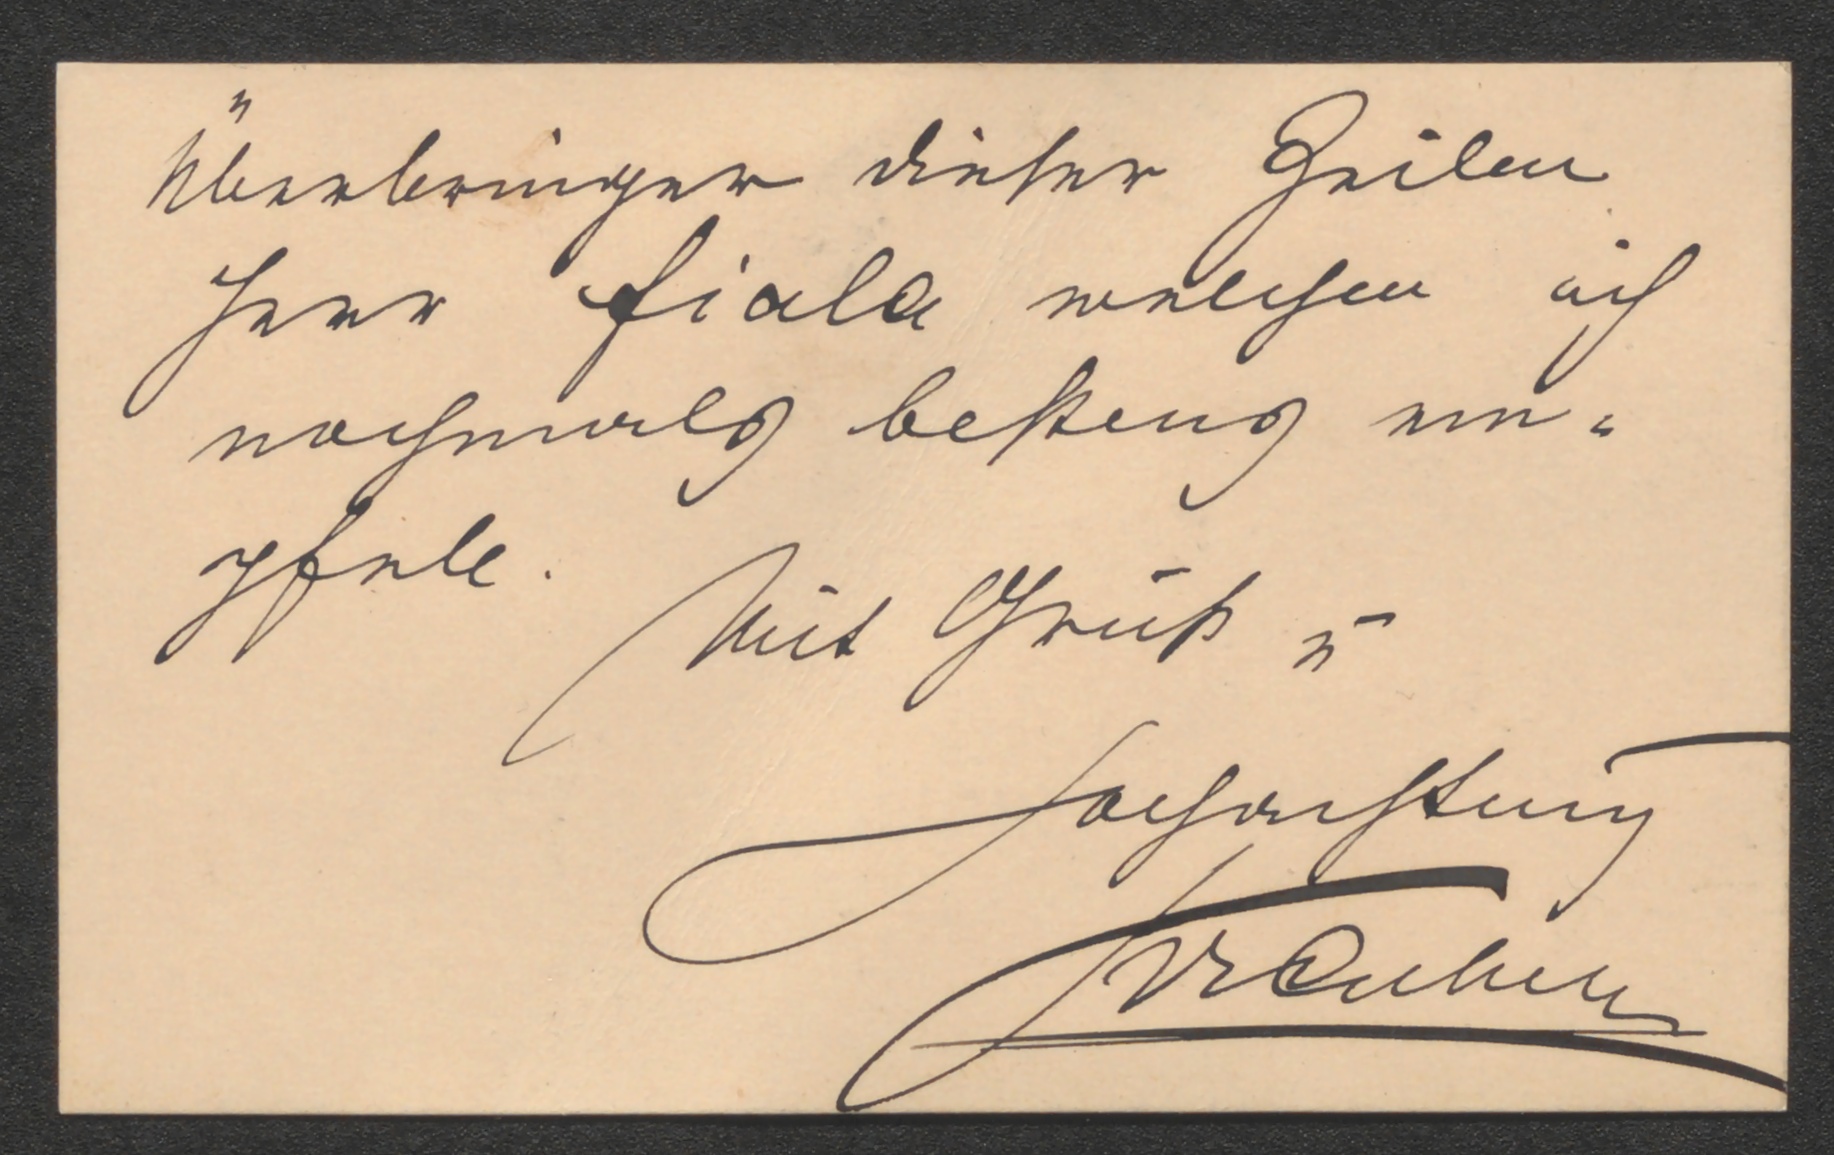 Überbringer dieser Zeilen
Herr Fiala welchen ich
nochmals bestens em=
pfele.
Mit Gruß u
Hochachtung